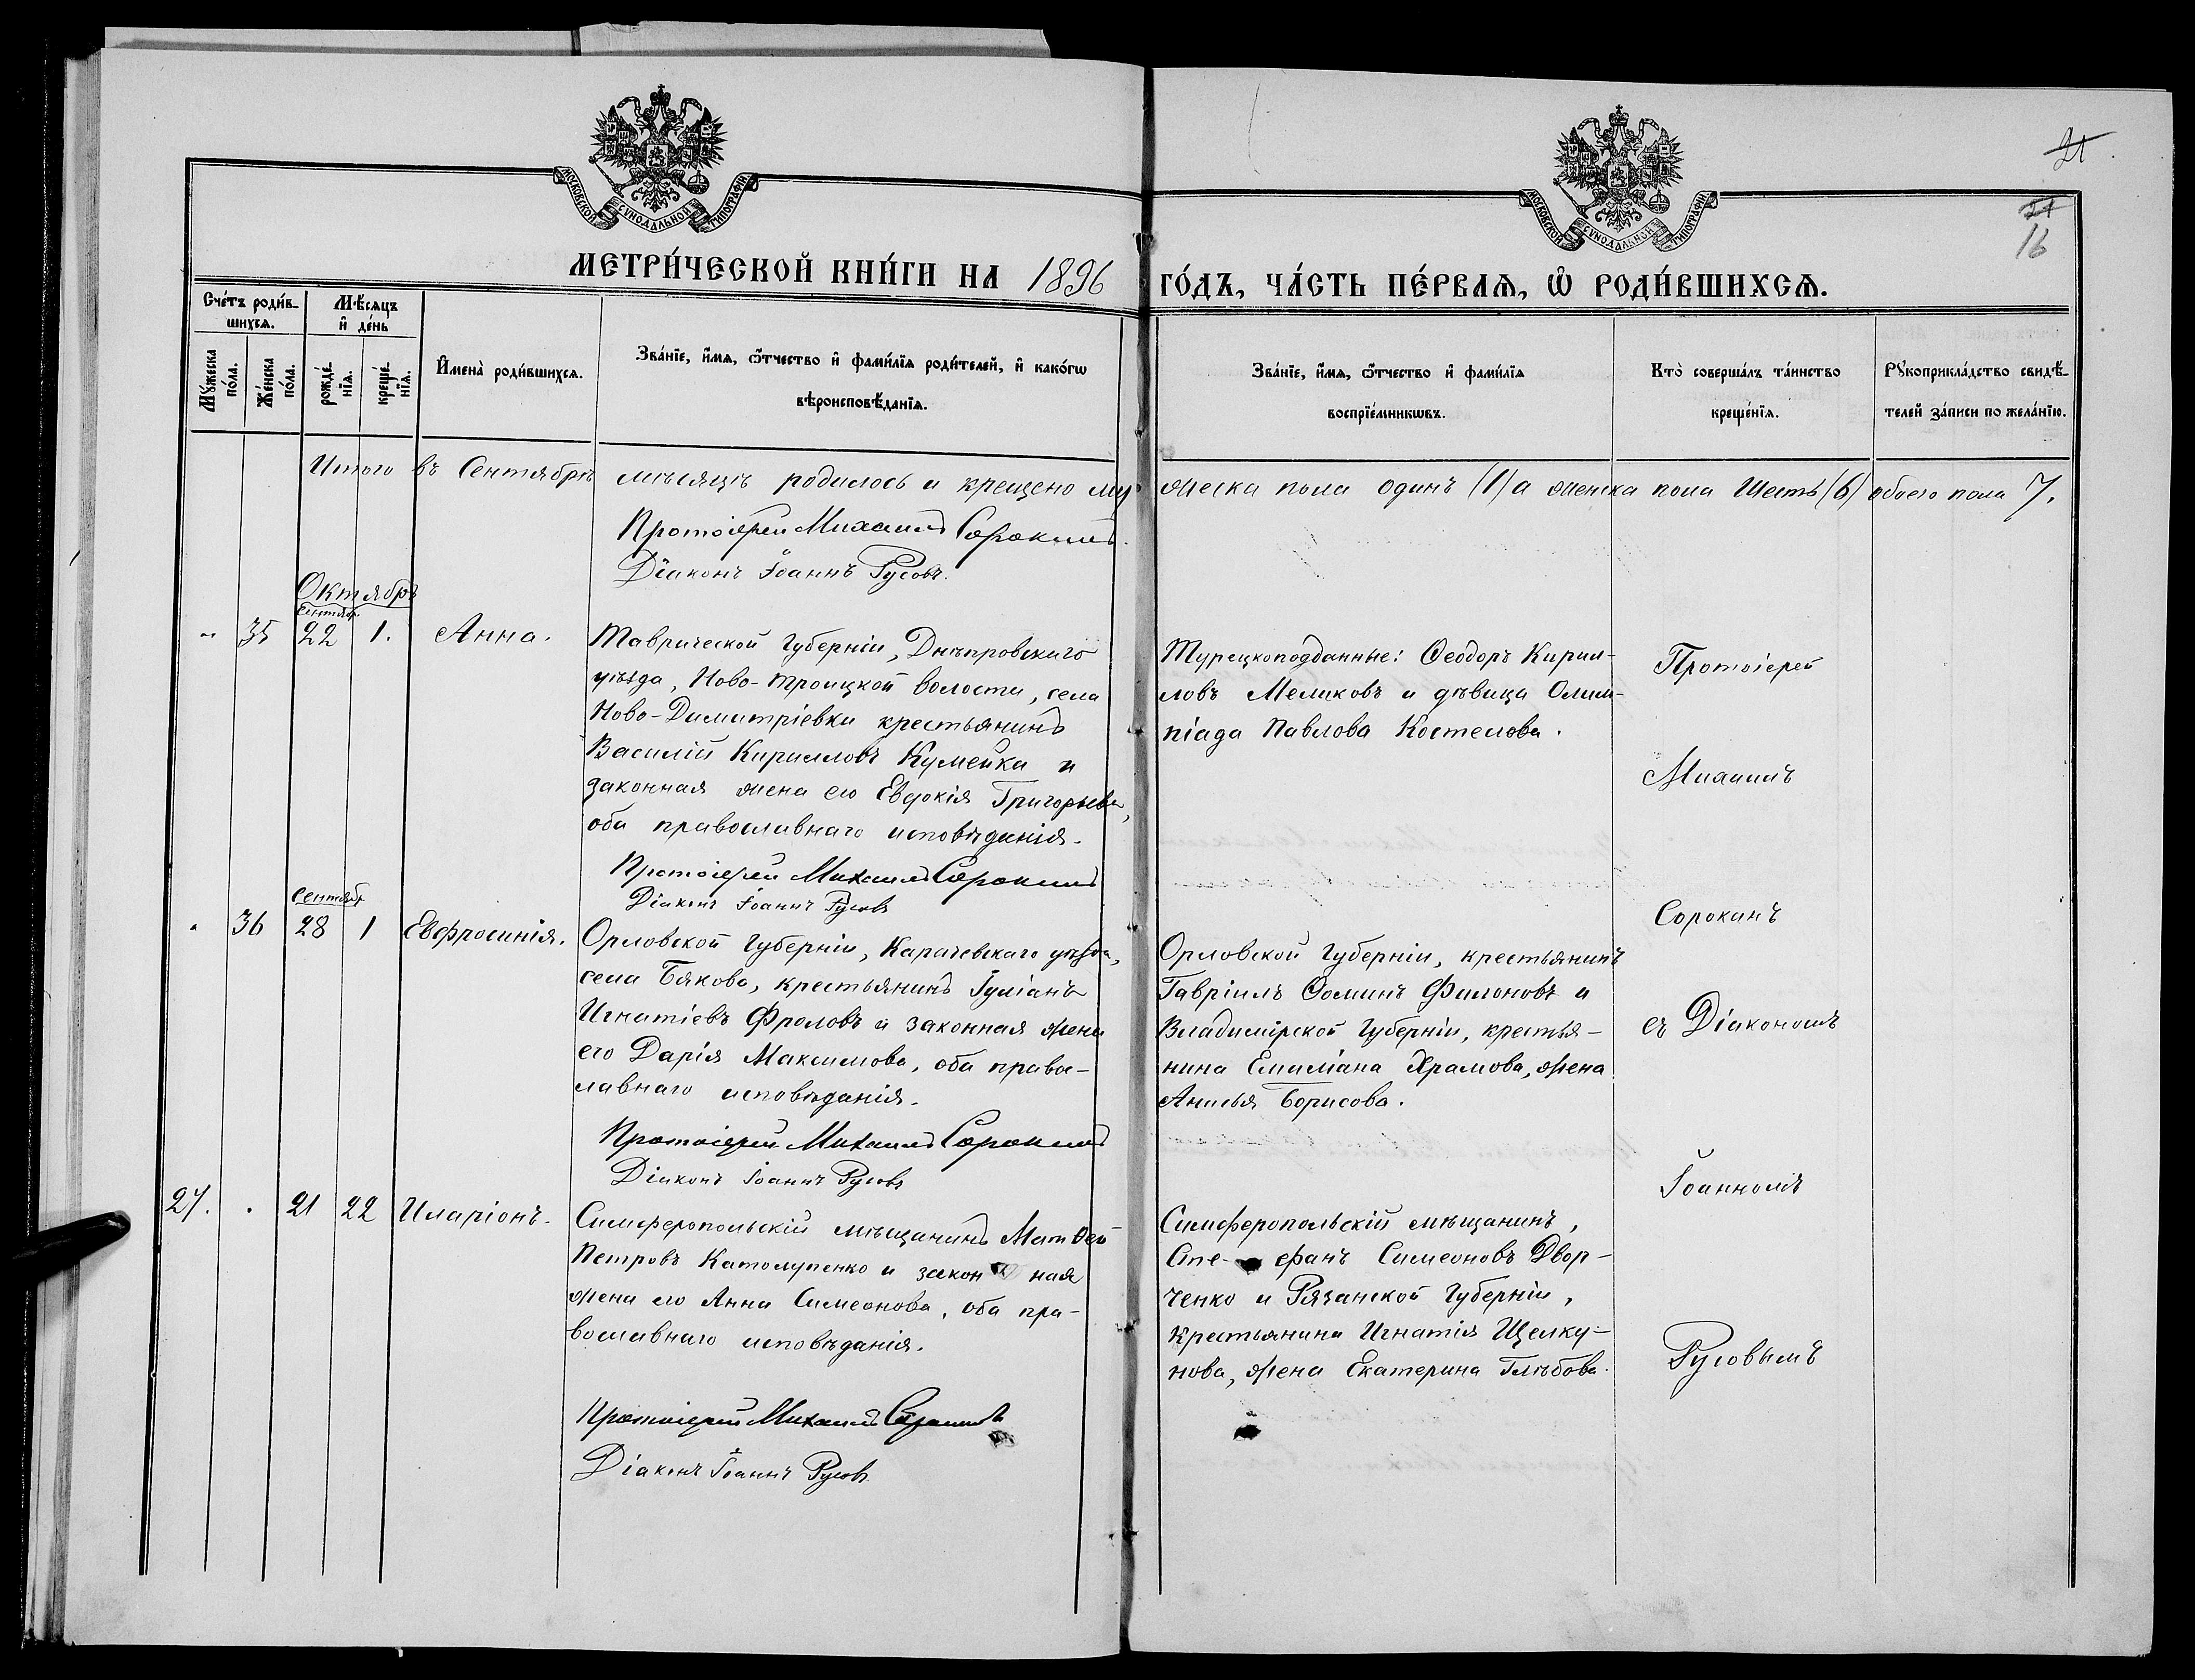 21
21
16
МОСКОВСКОЙ СѴНОДАЛЬНОЙ ТИПОГРАФІИ
МОСКОВСКОЙ СѴНОДАЛЬНОЙ ТИПОГРАФІИ
МЕТРИ́ЧЕСКОЙ КНИ́ГИ НА 1896 ГО́ДЪ, ЧА́СТЬ ПЕ́РВАѦ, Ѡ҆ РОДИ́ВШИХСѦ.
Сче́тъ роди́в-
шихсѧ.
Мꙋ́жеска по́ла.
Же́нска по́ла.
Мѣ́сяцъ
и҆ де́нь
рожде́нїѧ.
креще́нїѧ.
И҆мена̀ роди́вшихсѧ.
Зва́нїе, и҆́мѧ, ѻ҆́тчество и҆ фами́лїѧ роди́телей, и҆ како́гѡ
вѣроисповѣ́данїѧ.
Зва́нїе, и҆́мѧ, ѻ҆́тчество и҆ фами́лїѧ
воспрїе́мникѡвъ.
Кто̀ соверша́лъ та́инство
креще́нїѧ.
Рꙋкоприкла́дство свидѣ́-
телей за́писи по жела́нїю.
Итого въ Сентябрѣ мѣсяцѣ родилось и крещено мужеска пола одинъ (1) а женска пола Шесть (6) обоего пола 7.
Протоіерей Михаилъ Сорокинъ.
Діаконъ Іоаннъ Русовъ.
Октябрь
Сентябр.
" 35 22 1. Анна.
Таврической Губерніи, Днѣпровскаго
уѣзда, Ново-Троицкой волости, села
Ново-Димитріевки крестьянинъ
Василій Кирилловъ Кумейка и
законная жена его Евдокія Григорьева,
оба православнаго исповѣданія.
Протоіерей Михаилъ Сорокинъ
Діаконъ Іоаннъ Русовъ
Турецкоподданные: Ѳеодоръ Кирил-
ловъ Меликовъ и дѣвица Олим-
піада Павлова Костелова.
Сентябр.
" 36 28 1 Евфросинія.
Орловской Губерніи, Карачевскаго уѣзда,
села Бяково, крестьянинъ Іуліанъ
Игнатіевъ Фроловъ и законная жена
его Дарія Максимова, оба правос-
лавнаго исповѣданія.
Протоіерей Михаилъ Сорокинъ
Діаконъ Іоаннъ Русовъ
Орловской Губерніи, крестьянинъ
Гавріилъ Ѳоминъ Филоновъ и
Владимірской Губерніи, крестья-
нина Емиліана Храмова, жена
Анисья Борисова.
27. " 21 22 Иларіонъ.
Симферопольскій мѣщанинъ Матѳей
Петровъ Католупенко и закон ная
жена его Анна Симеонова, оба пра-
вославнаго исповѣданія.
Протоіерей Михаилъ Сорокинъ
Діаконъ Іоаннъ Русовъ
Симферопольскій мѣщанинъ,
Сте- фанъ Симеоновъ Двор-
ченко и Рязанской Губерніи,
крестьянина Игнатія Щелку-
нова, жена Екатерина Глѣбова.
Протоіерей
Михаилъ
Сорокинъ
съ Діакономъ
Іоанномъ
Русовымъ